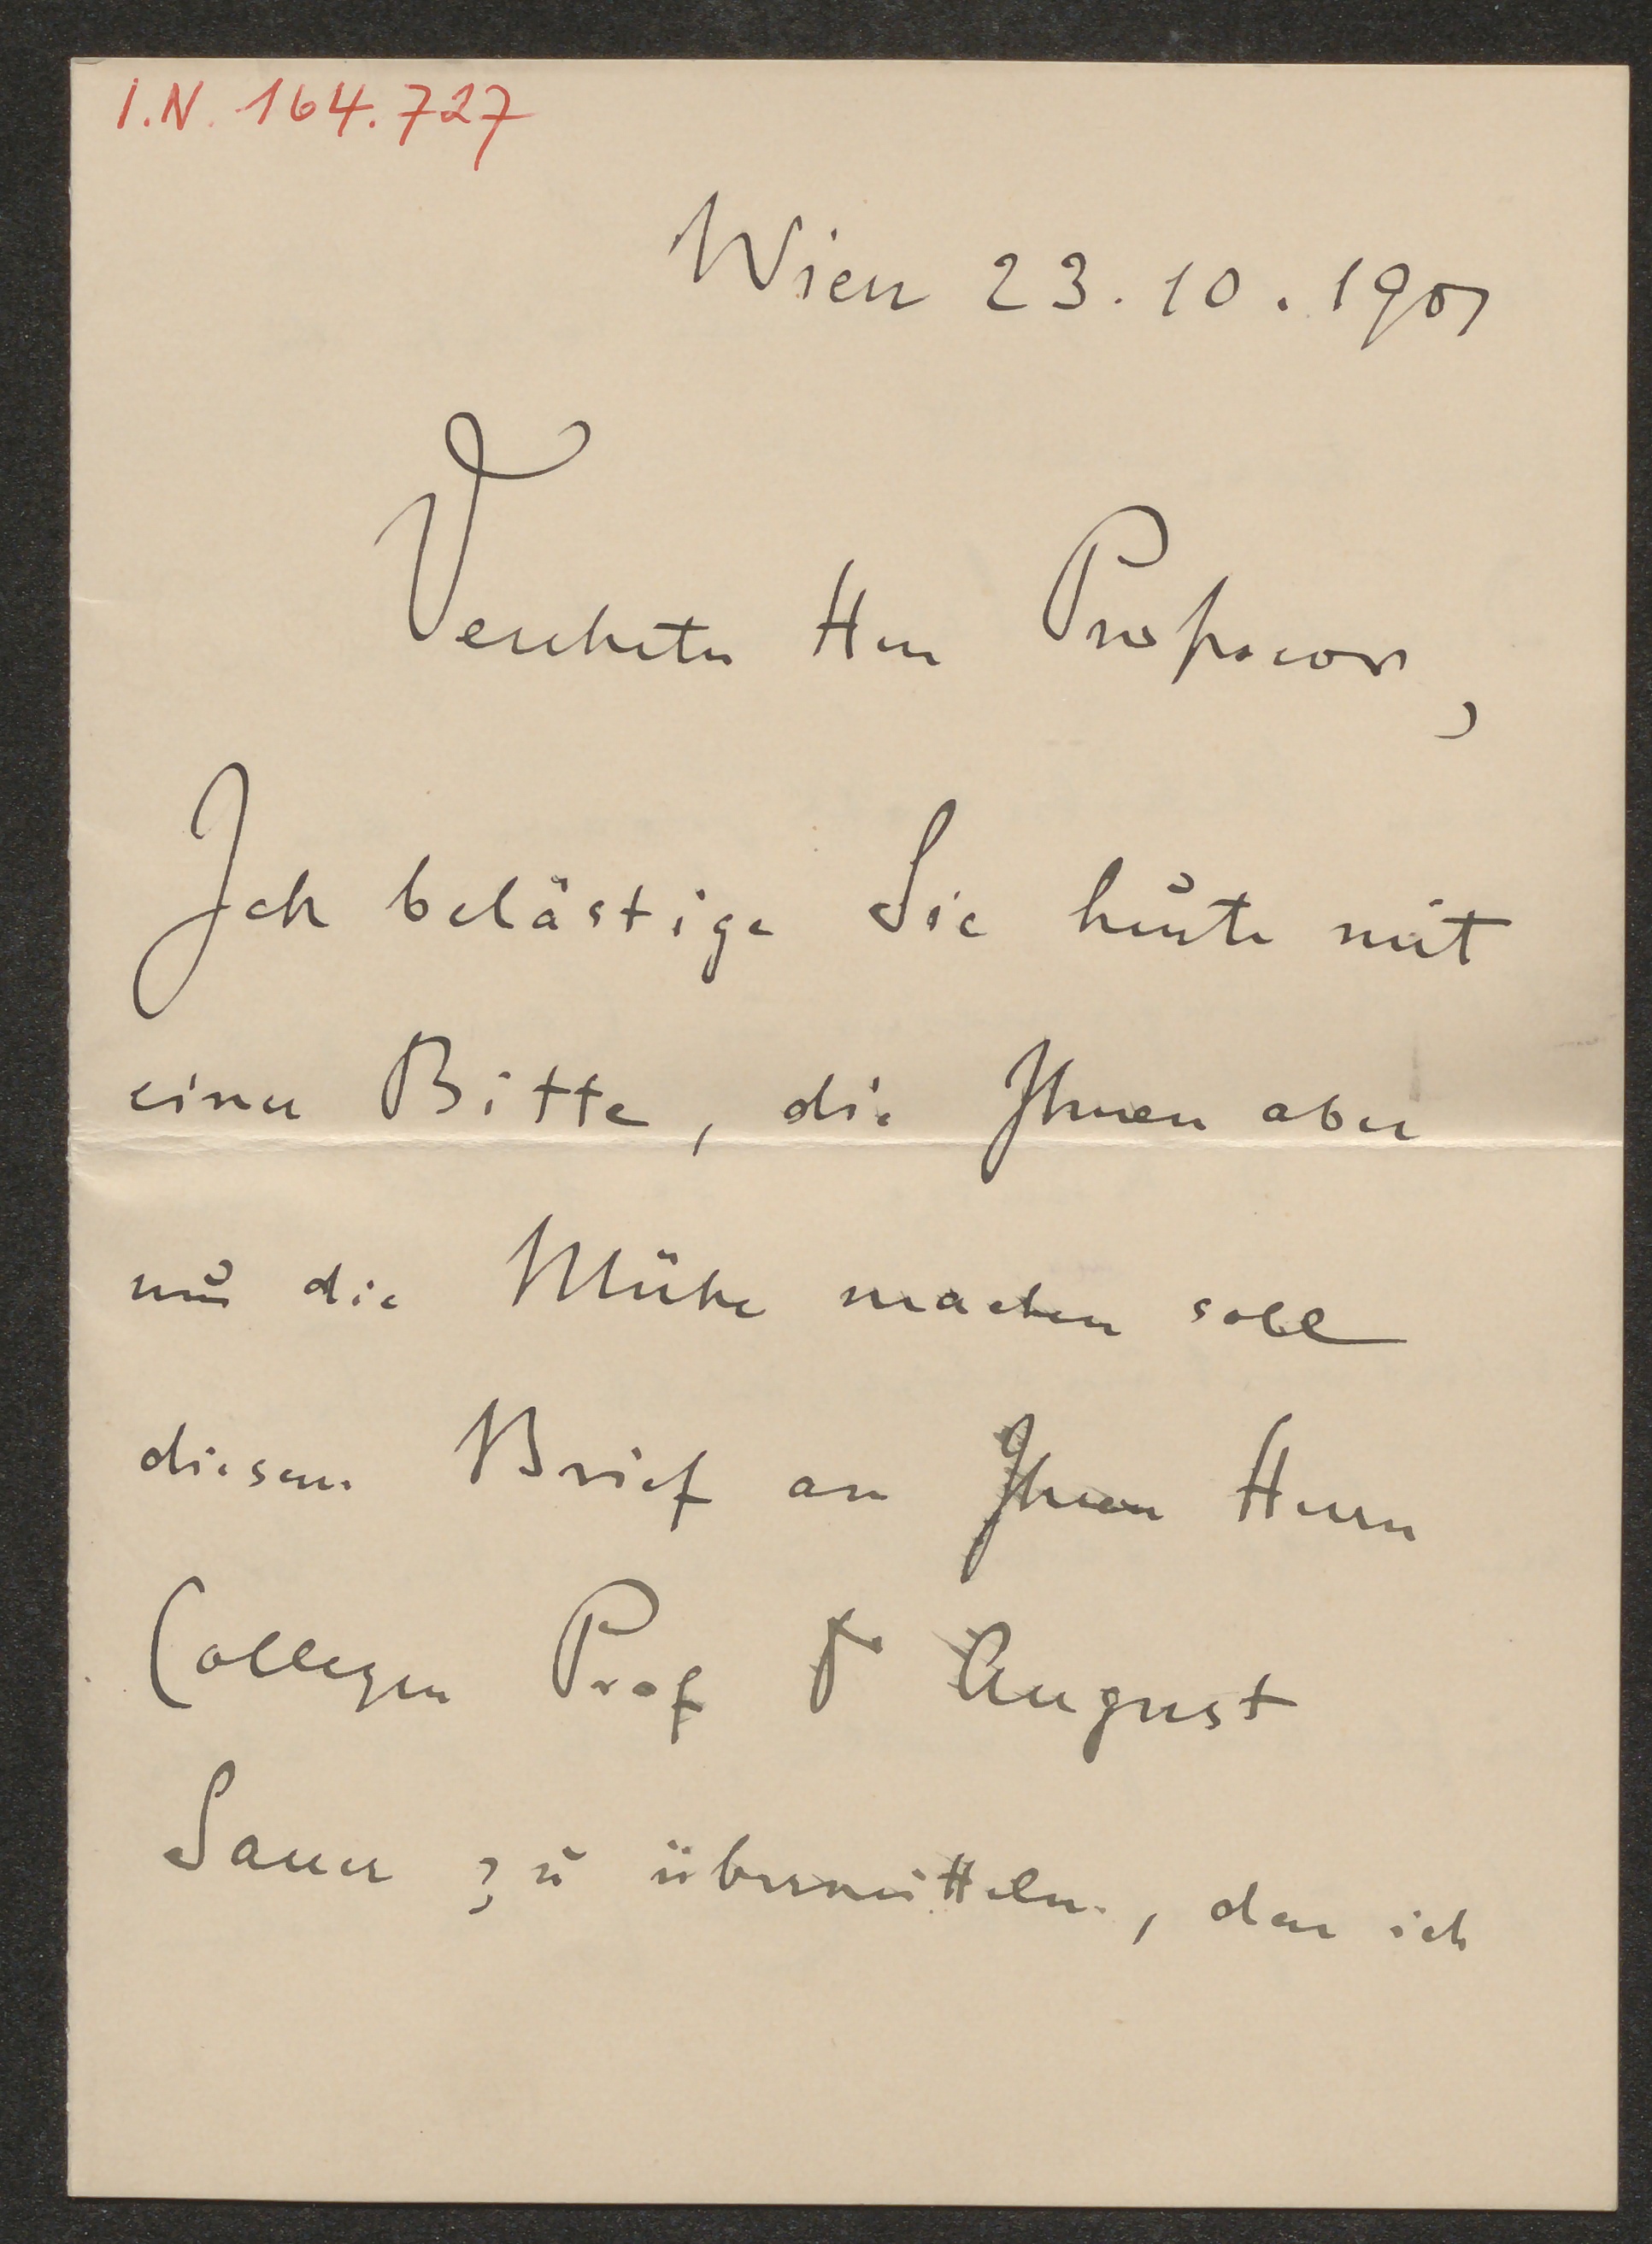 I.N. 164.727
Wien 23.10.1901
Verehrter Herr Professor,
Ich belästige Sie heute mit
einer Bitte, die Ihnen aber
nur die Mühe machen soll
diesen Brief an Ihren Herrn
Collegen Prof Dr August
Sauer zu übermitteln, den ich